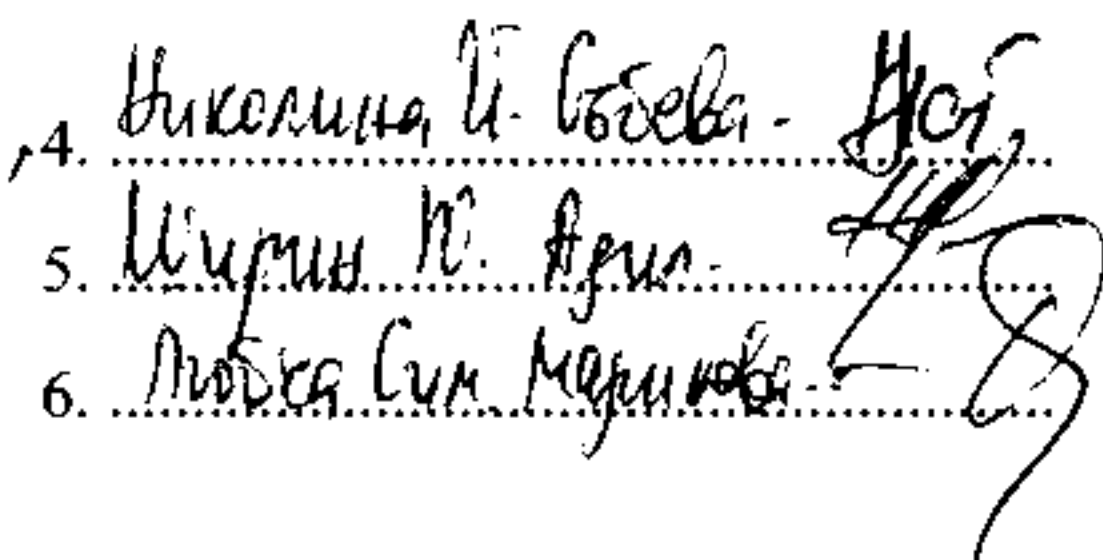 4. Николина Й. Събева -
5. Ширин Ю. Адил.
6. Любка Сим. Маринова -